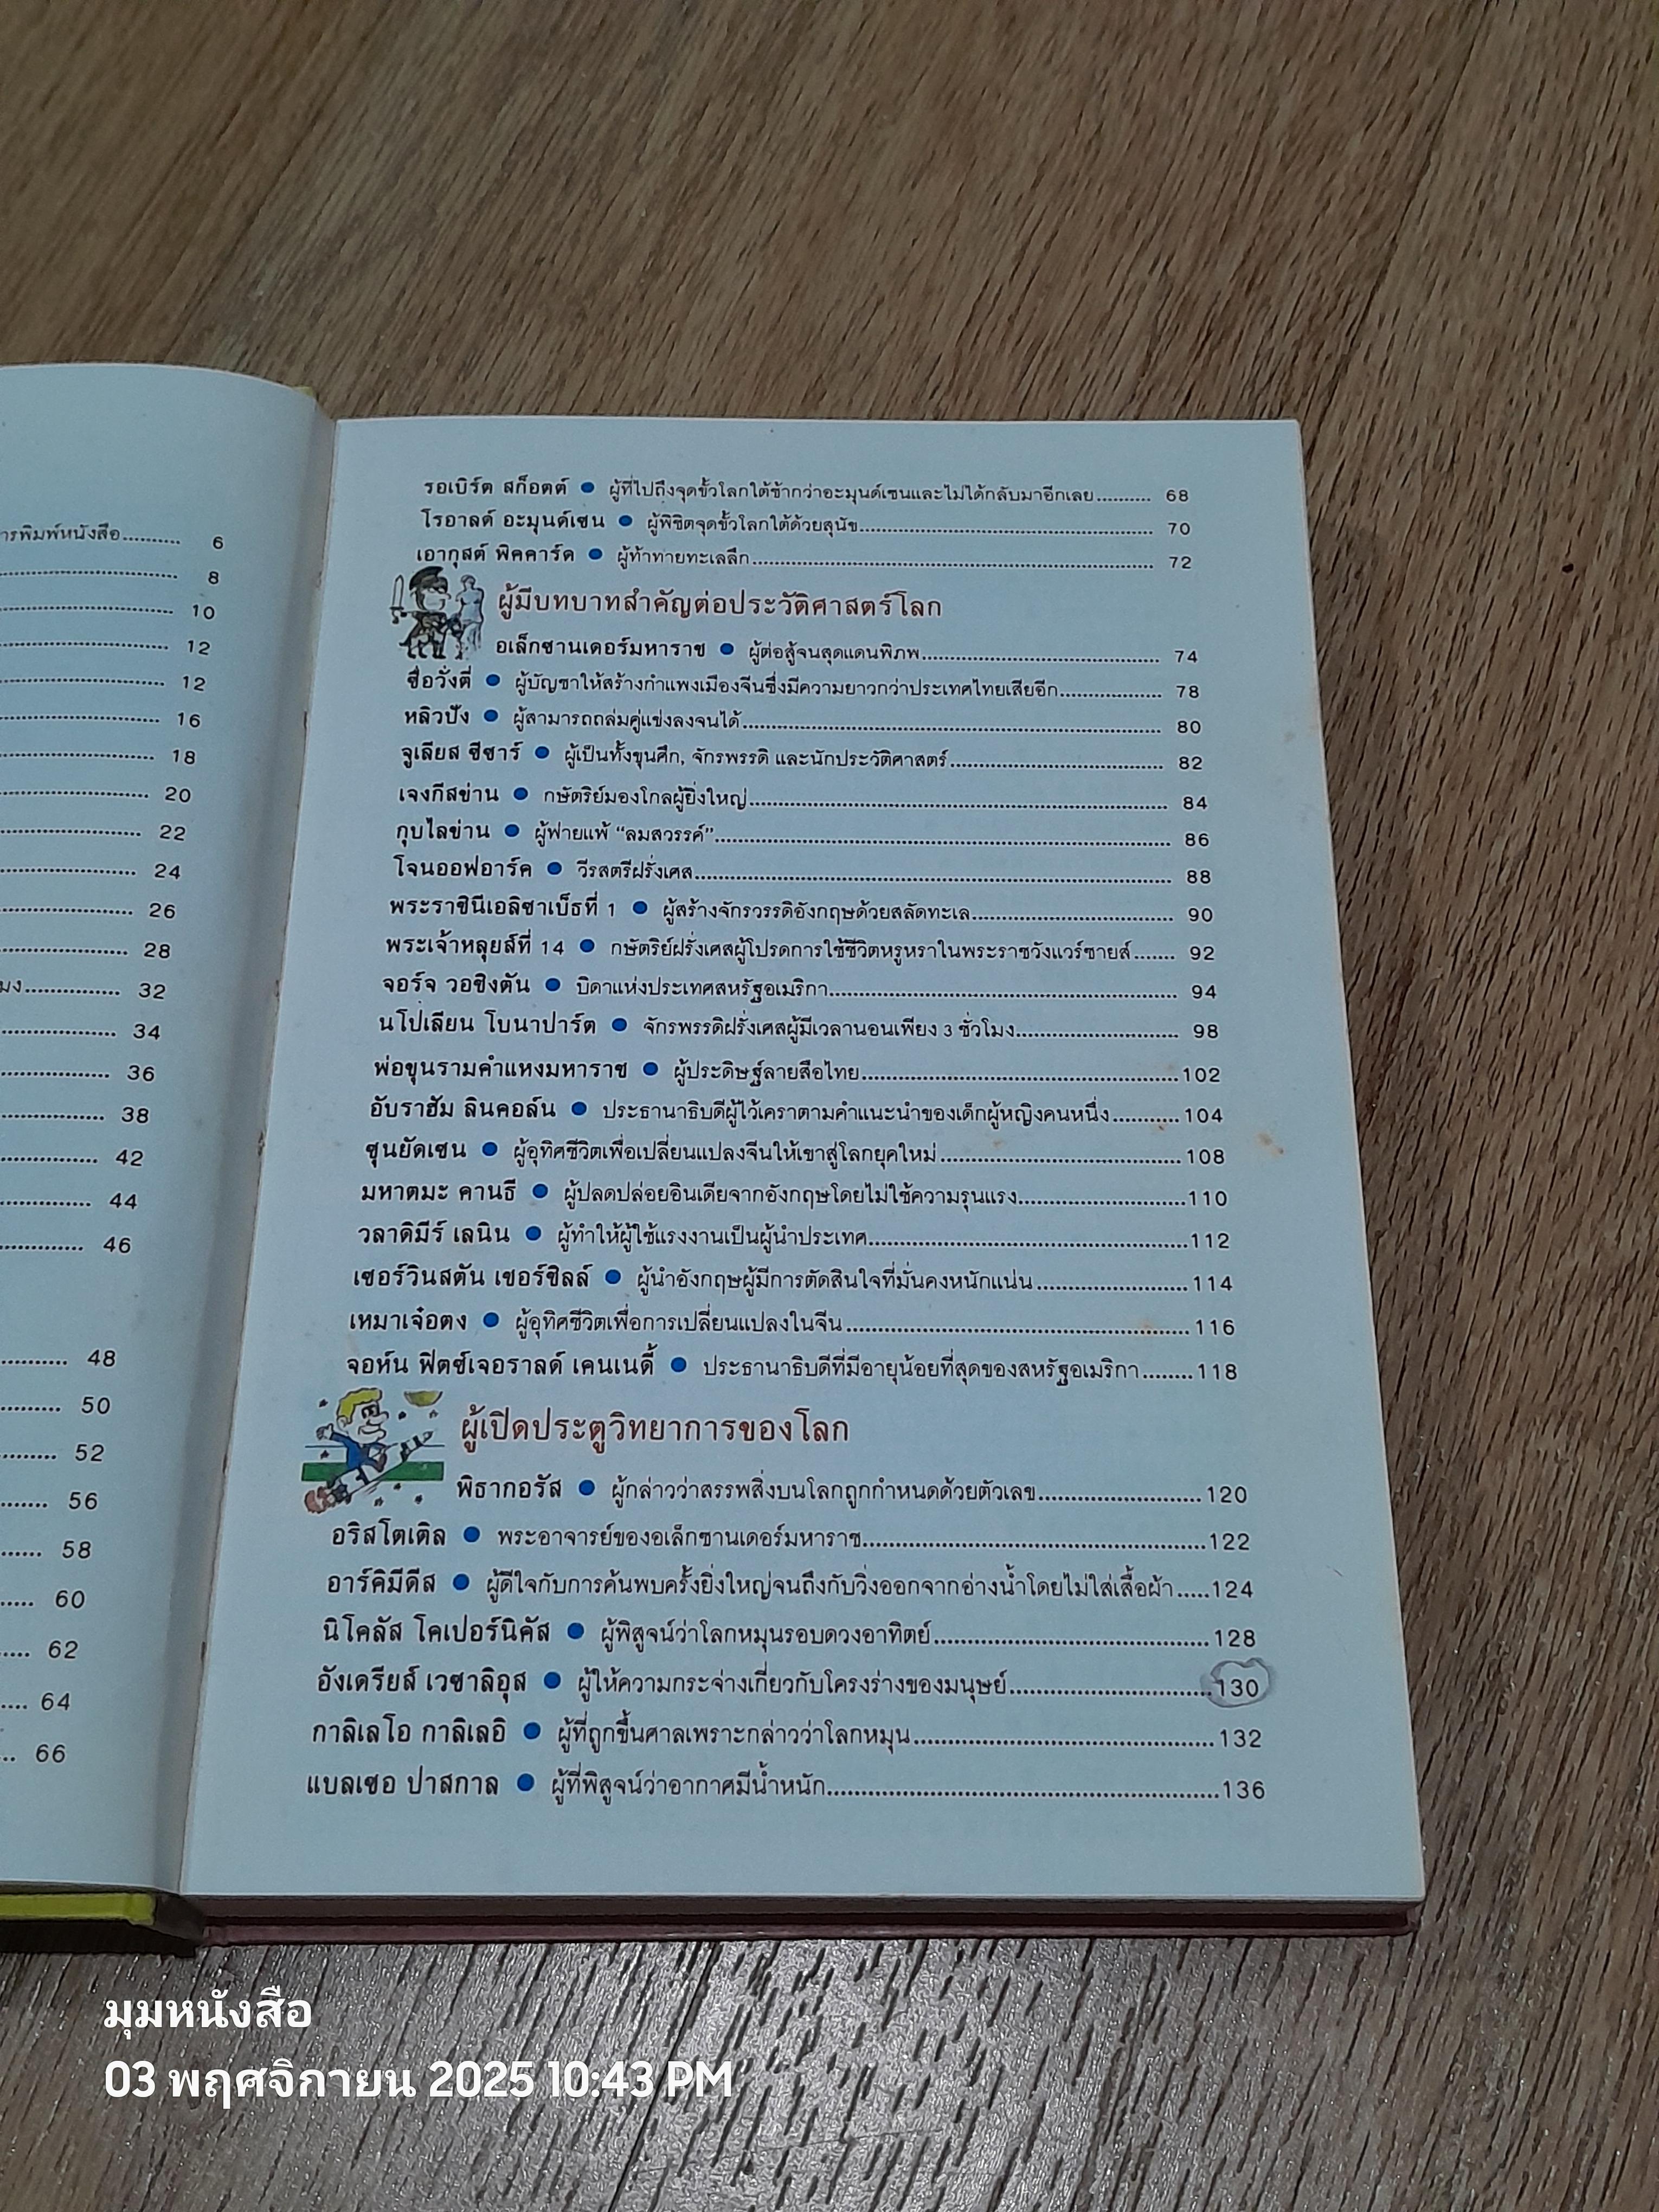 ารพิมพ์หนังสือ.......... 6
8
10
12
12
16
18
20
22
24
26
28
มง............... 32
34
36
38
42
44
46
48
50
52
56
58
60
62
64
66
รอเบิร์ต สก็อตต์ ● ผู้ที่ไปถึงจุดขั้วโลกใต้ช้ากว่าอะมุนด์เซนและไม่ได้กลับมาอีกเลย.......... 68
โรอาลด์ อะมุนด์เซน ● ผู้พิชิตจุดขั้วโลกใต้ด้วยสุนัข.......... 70
เอากุสต์ พิคคาร์ด ● ผู้ท้าทายทะเลลึก.......... 72
ผู้มีบทบาทสำคัญต่อประวัติศาสตร์โลก
อเล็กซานเดอร์มหาราช ● ผู้ต่อสู้จนสุดแดนพิภพ.......... 74
ซื่อวั่งตี่ ● ผู้บัญชาให้สร้างกำแพงเมืองจีนซึ่งมีความยาวกว่าประเทศไทยเสียอีก.......... 78
หลิวปัง ● ผู้สามารถถล่มคู่แข่งลงจนได้.......... 80
จูเลียส ซีซาร์ ● ผู้เป็นทั้งขุนศึก, จักรพรรดิ และนักประวัติศาสตร์.......... 82
เจงกีสข่าน ● กษัตริย์มองโกลผู้ยิ่งใหญ่.......... 84
กุบไลข่าน ● ผู้พ่ายแพ้ “ลมสวรรค์”.......... 86
โจนออฟอาร์ค ● วีรสตรีฝรั่งเศส.......... 88
พระราชินีเอลิซาเบ็ธที่ 1 ● ผู้สร้างจักรวรรดิอังกฤษด้วยสลัดทะเล.......... 90
พระเจ้าหลุยส์ที่ 14 ● กษัตริย์ฝรั่งเศสผู้โปรดการใช้ชีวิตหรูหราในพระราชวังแวร์ซายส์....... 92
จอร์จ วอชิงตัน ● บิดาแห่งประเทศสหรัฐอเมริกา.......... 94
นโปเลียน โบนาปาร์ต ● จักรพรรดิฝรั่งเศสผู้มีเวลานอนเพียง 3 ชั่วโมง.......... 98
พ่อขุนรามคำแหงมหาราช ● ผู้ประดิษฐ์ลายสือไทย..........102
อับราฮัม ลินคอล์น ● ประธานาธิบดีผู้ไว้เคราตามคำแนะนำของเด็กผู้หญิงคนหนึ่ง..........104
ซุนยัดเซน ● ผู้อุทิศชีวิตเพื่อเปลี่ยนแปลงจีนให้เข้าสู่โลกยุคใหม่..........108
มหาตมะ คานธี ● ผู้ปลดปล่อยอินเดียจากอังกฤษโดยไม่ใช้ความรุนแรง..........110
วลาดิมีร์ เลนิน ● ผู้ทำให้ผู้ใช้แรงงานเป็นผู้นำประเทศ..........112
เซอร์วินสตัน เชอร์ชิลล์ ● ผู้นำอังกฤษผู้มีการตัดสินใจที่มั่นคงหนักแน่น..........114
เหมาเจ๋อตง ● ผู้อุทิศชีวิตเพื่อการเปลี่ยนแปลงในจีน..........116
จอห์น ฟิตซ์เจอราลด์ เคนเนดี้ ● ประธานาธิบดีที่มีอายุน้อยที่สุดของสหรัฐอเมริกา........118
ผู้เปิดประตูวิทยาการของโลก
พิธากอรัส ● ผู้กล่าวว่าสรรพสิ่งบนโลกถูกกำหนดด้วยตัวเลข..........120
อริสโตเติล ● พระอาจารย์ของอเล็กซานเดอร์มหาราช..........122
อาร์คิมีดีส ● ผู้ดีใจกับการค้นพบครั้งยิ่งใหญ่จนถึงกับวิ่งออกจากอ่างน้ำโดยไม่ใส่เสื้อผ้า.....124
นิโคลัส โคเปอร์นิคัส ● ผู้พิสูจน์ว่าโลกหมุนรอบดวงอาทิตย์..........128
อังเดรียส์ เวซาลิอุส ● ผู้ให้ความกระจ่างเกี่ยวกับโครงร่างของมนุษย์..........130
กาลิเลโอ กาลิเลอิ ● ผู้ที่ถูกขึ้นศาลเพราะกล่าวว่าโลกหมุน..........132
แบลเซอ ปาสกาล ● ผู้ที่พิสูจน์ว่าอากาศมีน้ำหนัก..........136
มุมหนังสือ
03 พฤศจิกายน 2025 10:43 PM